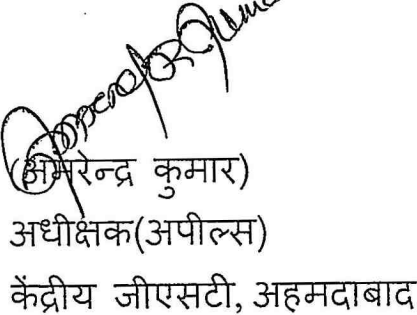 (अमरेन्द्र कुमार)
अधीक्षक(अपील्स)
केंद्रीय जीएसटी, अहमदाबाद